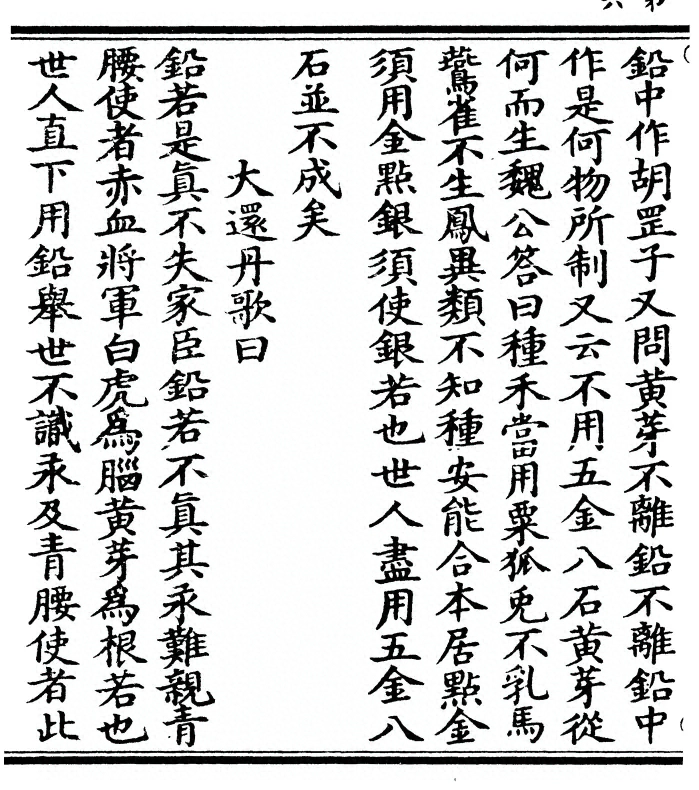 鉛中作胡罡子又問黃芽不離鉛不離鉛中
作是何物所制又云不用五金八石黃芽從
何而生魏公答曰種禾當用粟狐兎不乳馬
鷰雀不生鳳異類不知種安能合本居點金
須用金點銀須使銀若也世人盡用五金八
石並不成矣
大還丹歌曰
鉛若是眞不失家臣鉛若不眞其汞難親青
腰使者赤血將軍白虎爲腦黃芽爲根若也
世人直下用鉛舉世不識汞及青腰使者此